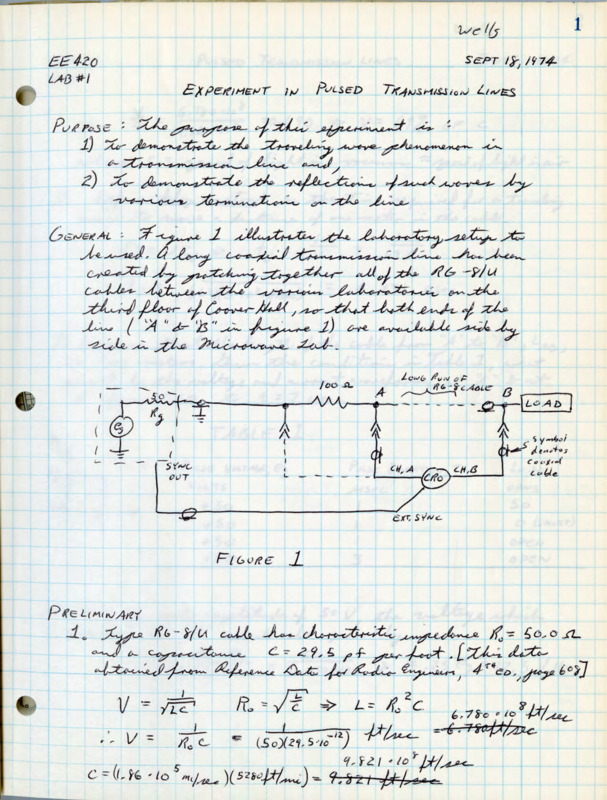 Wells
1
EE420
SEPT 18, 1974
LAB #1
EXPERIMENT IN PULSED TRANSMISSION LINES
PURPOSE: The purpose of this experiment is:
1) To demonstrate the traveling wave phenomenon in
a transmission line and,
2) To demonstrate the reflections of such waves by
various terminations on the line
GENERAL: Figure 1 illustrates the laboratory setup to
be used. A long coaxial transmission line has been
created by patching together all of the RG-8/U
cables between the various laboratories on the
third floor of Coover Hall, so that both ends of the
line ("A" & "B" in figure 1) are available side by
side in the Microwave Lab.
50
Rg
eg
100 Ω
A
LONG RUN OF
RG-8 CABLE
B
LOAD
SYNC
OUT
CH. A
CRO
CH. B
symbol
denotes
coaxial
cable
EXT. SYNC
FIGURE 1
PRELIMINARY
1. Type RG-8/U cable has characteristic impedance R₀ = 50.0 Ω
and a capacitance C = 29.5 pf per foot. [This data
obtained from Reference Data for Radio Engineers, 4TH ED., page 608]
V = 1/√LC R₀ = √L/C ⇒ L = R₀²C
6.780 · 10⁸ ft/sec
∴ V = 1/R₀C = 1/(50)(29.5·10⁻¹²) ft/sec = 6.780 ft/sec
9.821 · 10⁸ ft/sec
C = (1.86 · 10⁵ mi/sec)(5280 ft/mi) = 9.821 ft/sec